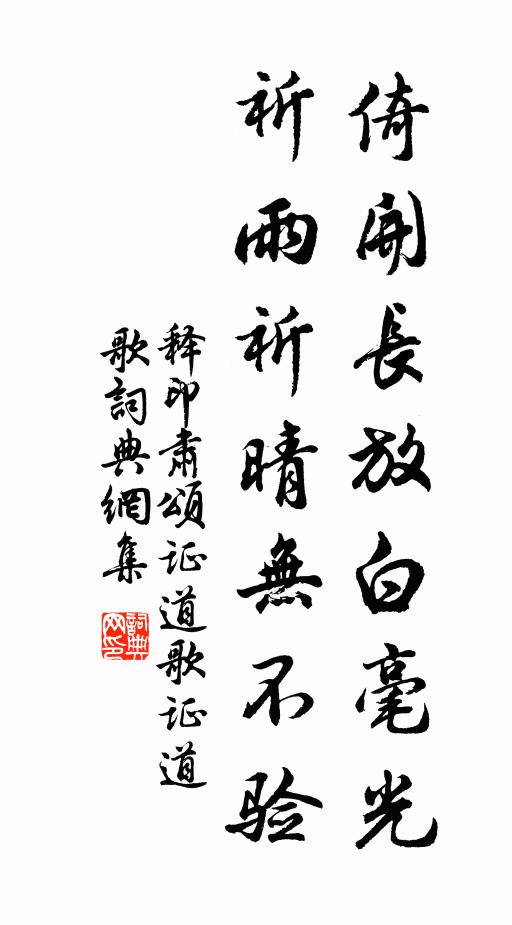 倚開長放白毫光
祈雨祈晴無不验
释印肃颂证道歌证道
歌詞典網集
詞典
网印